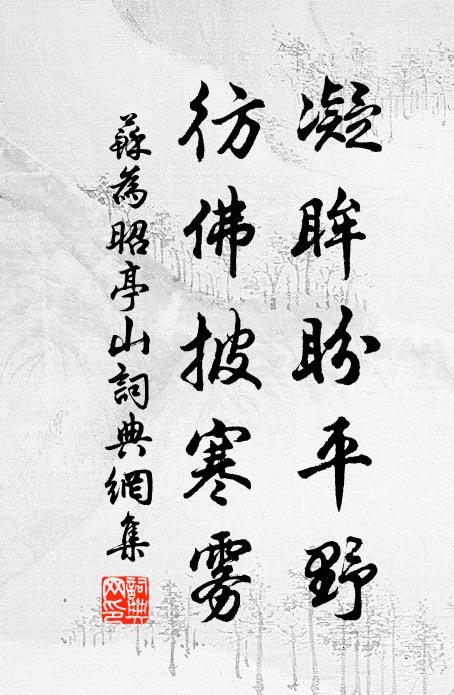 凝眸盼平野
彷佛披寒雾
蘇為昭亭山詞典網集
詞典網印